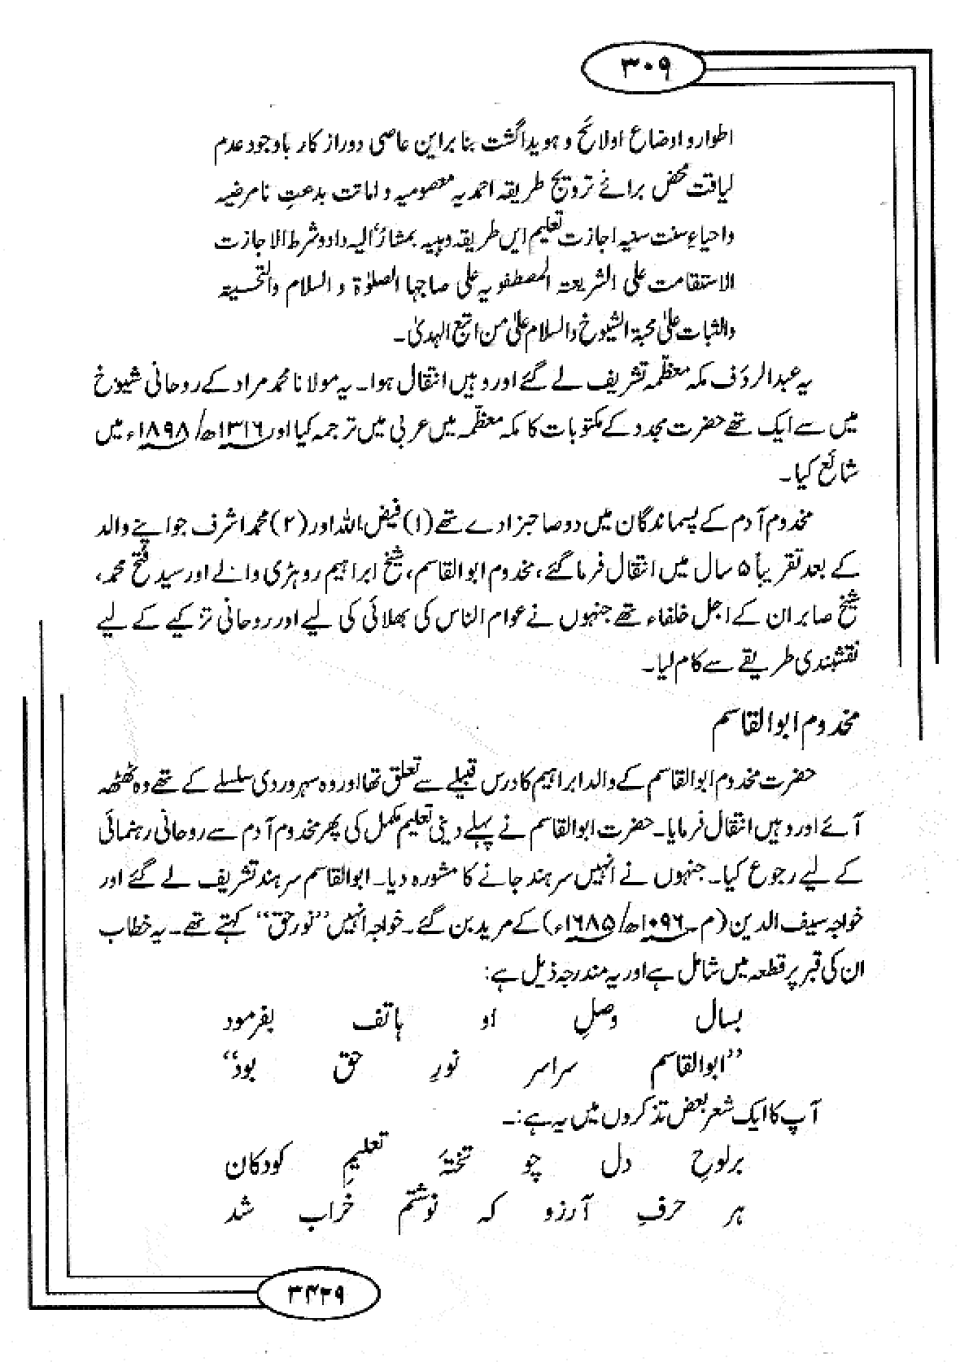 ۳۰۹
اطوار و اوضاع او لائح و ہویدا گشت بنا براین عاصی دور از کار باوجود عدم
لیاقت محض برائے ترویج طریقہ احمدیہ معصومیہ و اماتت بدعتِ نامرضیہ
و احیاءِ سنت سنیہ اجازت تعلیم ایں طریقہ وہبیہ بمشارٌ الیہ داد و شرط الاجازت
الاستقامت علی الشریعتہ المصطفویہ علی صاحبہا الصلوٰۃ و السلام والتحسیتہ
والثبات علیٰ محبۃ الشیوخ والسلام علیٰ من اتبع الہدیٰ۔
یہ عبدالرؤف مکہ معظّمہ تشریف لے گئے اور وہیں انتقال ہوا۔ یہ مولانا محمد مراد کے روحانی شیوخ
میں سے ایک تھے حضرت مجدد کے مکتوبات کا مکہ معظّمہ میں عربی میں ترجمہ کیا اور ۱۳۱۶ھ/۱۸۹۸ء میں
شائع کیا۔
مخدوم آدم کے پسماندگان میں دو صاحبزادے تھے (۱) فیض اللہ اور (۲) محمد اشرف جو اپنے والد
کے بعد تقریباً ۵ سال میں انتقال فرما گئے، مخدوم ابوالقاسم، شیخ ابراہیم روہڑی والے اور سید فتح محمد،
شیخ صابر ان کے اجل خلفاء تھے جنہوں نے عوام الناس کی بھلائی کی لیے اور روحانی تزکیے کے لیے
نقشبندی طریقے سے کام لیا۔
مخدوم ابوالقاسم
حضرت مخدوم ابوالقاسم کے والد ابراہیم کا درس قبیلے سے تعلق تھا اور وہ سہروردی سلسلے کے تھے وہ ٹھٹھہ
آئے اور وہیں انتقال فرمایا۔ حضرت ابوالقاسم نے پہلے دینی تعلیم مکمل کی پھر مخدوم آدم سے روحانی رہنمائی
کے لیے رجوع کیا۔ جنہوں نے انہیں سرہند جانے کا مشورہ دیا۔ ابوالقاسم سرہند تشریف لے گئے اور
خواجہ سیف الدین (م۔ ۱۰۹۶ھ/۱۶۸۵ء) کے مرید بن گئے۔ خواجہ انہیں ”نورِ حق“ کہتے تھے۔ یہ خطاب
ان کی قبر پر قطعہ میں شامل ہے اور یہ مندرجہ ذیل ہے:
بسال وصلِ او ہاتف بفرمود
”ابوالقاسم سراسر نورِ حق بود“
آپ کا ایک شعر بعض تذکروں میں یہ ہے:۔
برلوحِ دل چو تختۂ تعلیمِ کودکان
ہر حرفِ آرزو کہ نوشتم خراب شد
۳۴۲۹